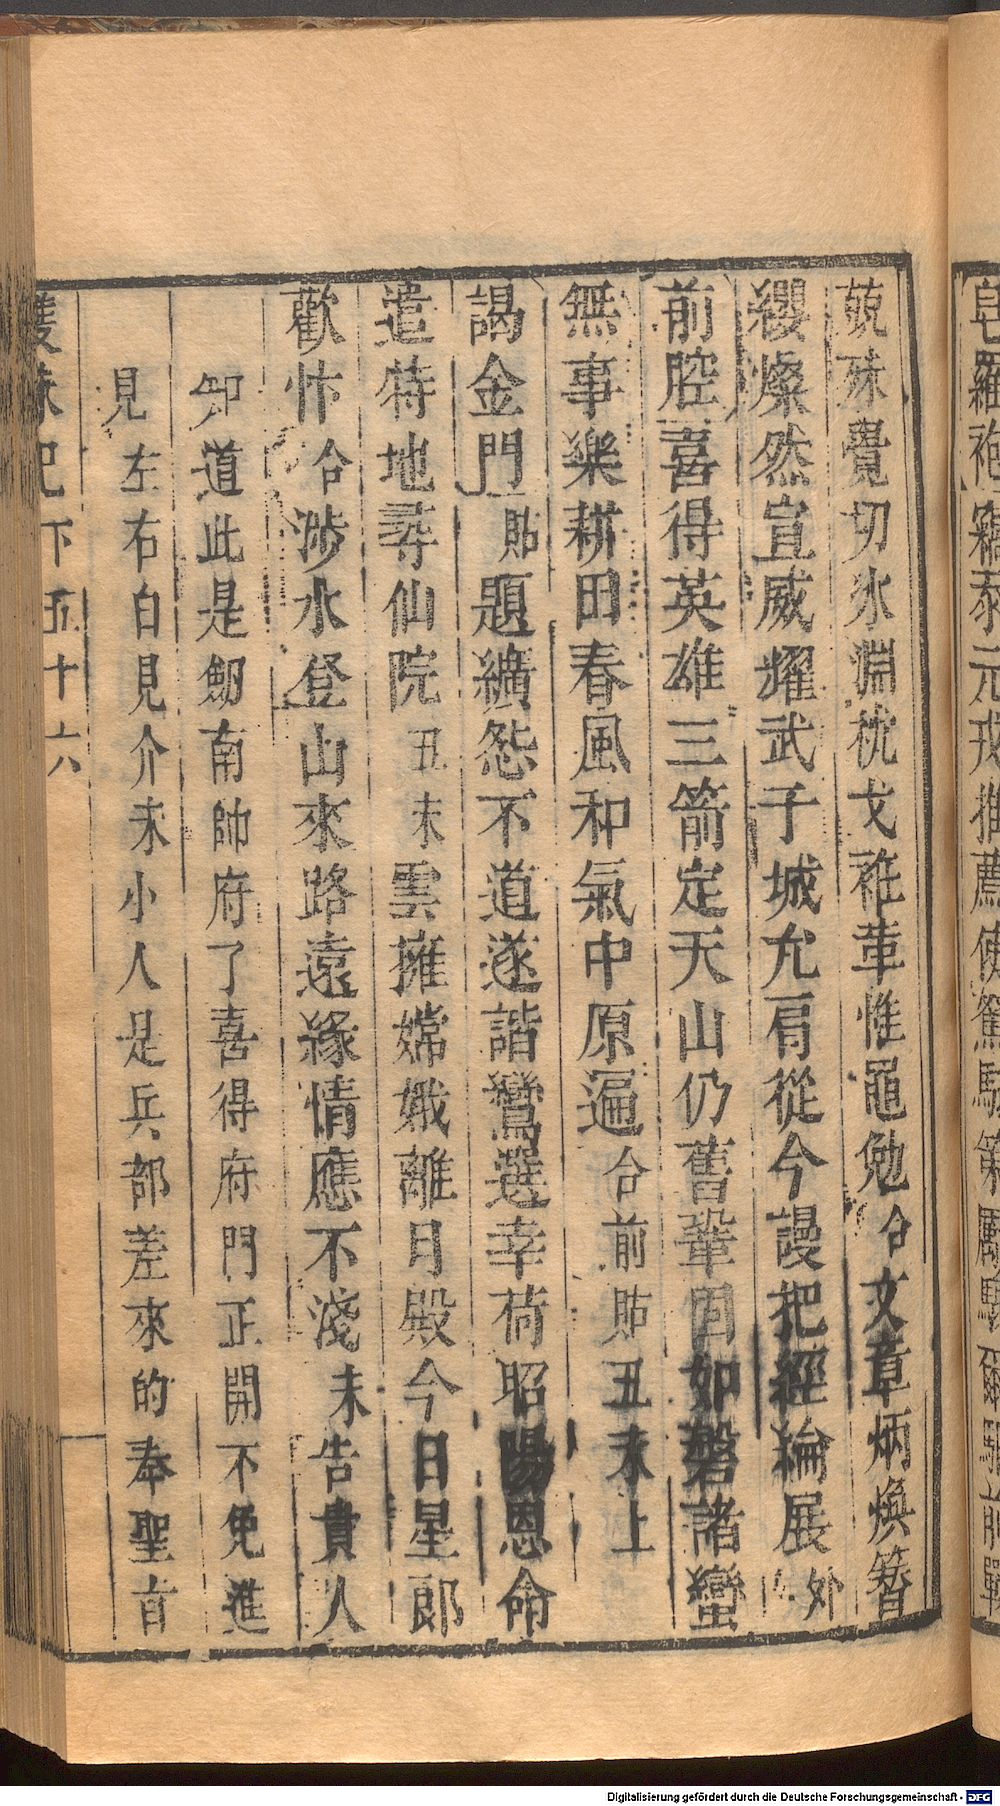 皂羅袍竊忝元戎推薦使駑駘策厲
兢殊覺切氷淵枕戈袵革惟黽勉合文章炳煥簪
纓燦然宣威耀武子城允肩從今謾把經綸展外
前腔喜得英雄三箭定天山仍舊鞏固如磐諸蠻
無事樂耕田春風和氣中原遍合前貼丑末上
謁金門貼題纊怨不道遂諧鸞選幸荷昭陽恩命
遣特地尋仙院丑末雲擁嫦娥離月殿今日星郎
歡忭合涉水登山來路遠緣情應不淺末告貴人
知道此是劒南帥府了喜得府門正開不免進
見左右白見介末小人是兵部差來的奉聖旨
雙珠記下五十六
Digitalisierung gefördert durch die Deutsche Forschungsgemeinschaft - DFG